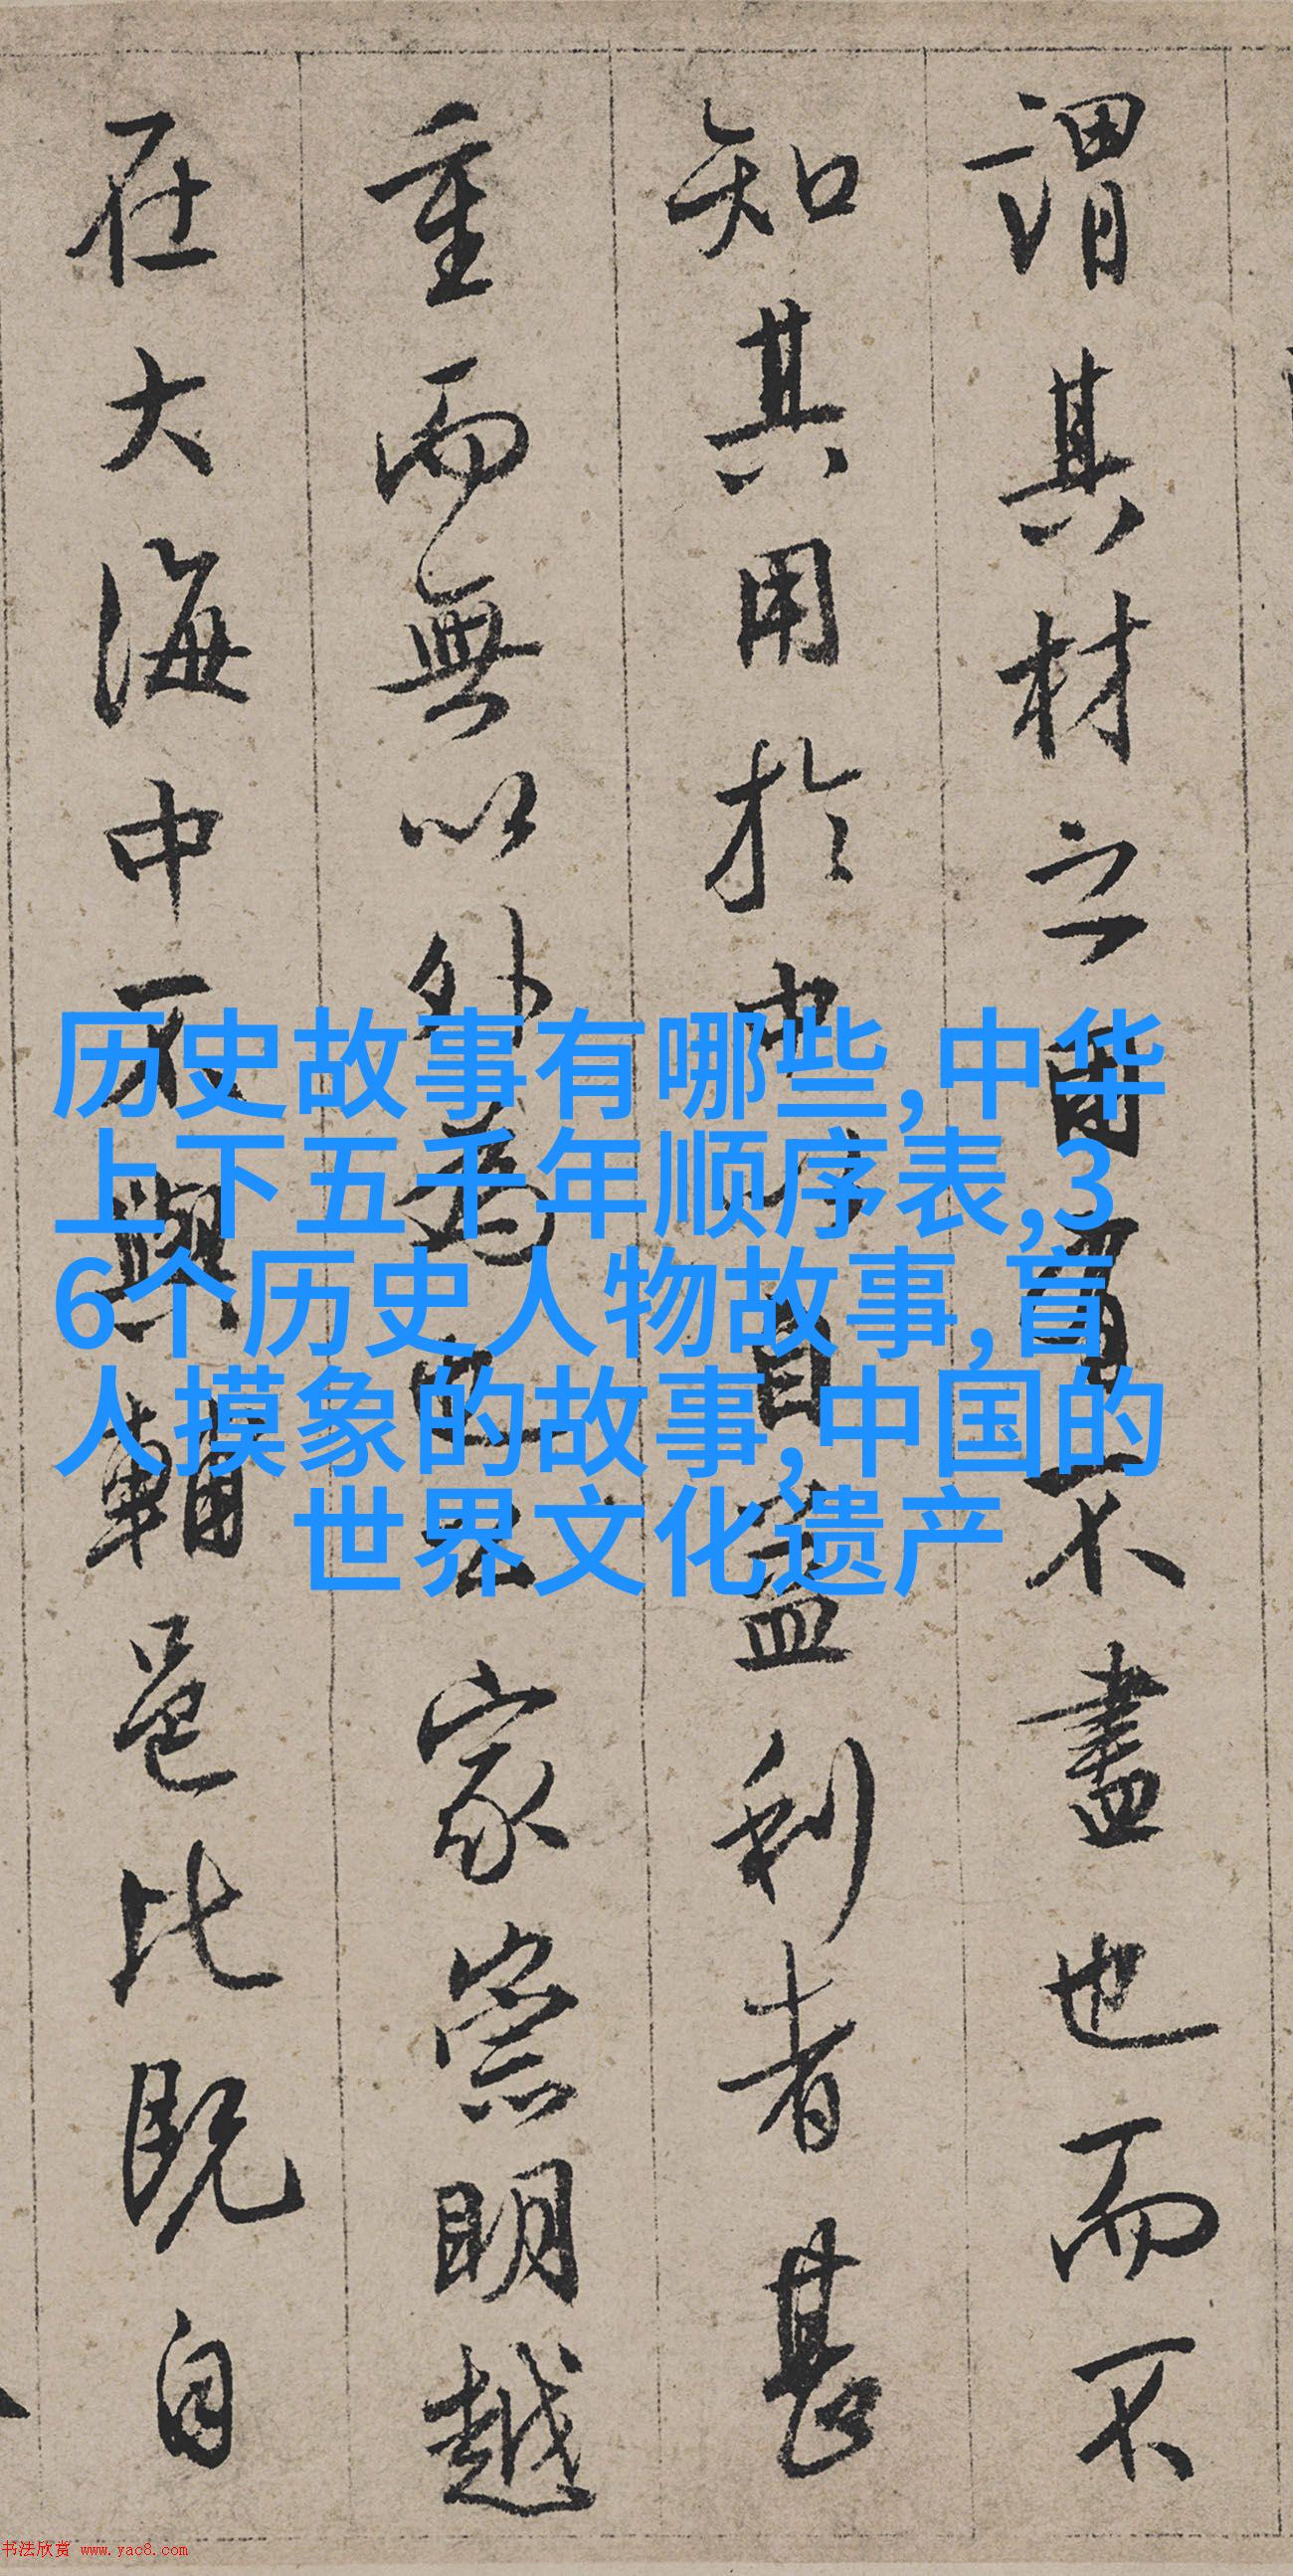 謂其材之不盡也而不
知其用於中自益利者甚
重而無以外為也家崇明越
在大海中不與輔邑比既自
历史故事有哪些,中华
上下五千年顺序表,3
6个历史人物故事,盲
人摸象的故事,中国的
世界文化遗产
书法欣赏 www.yac8.com